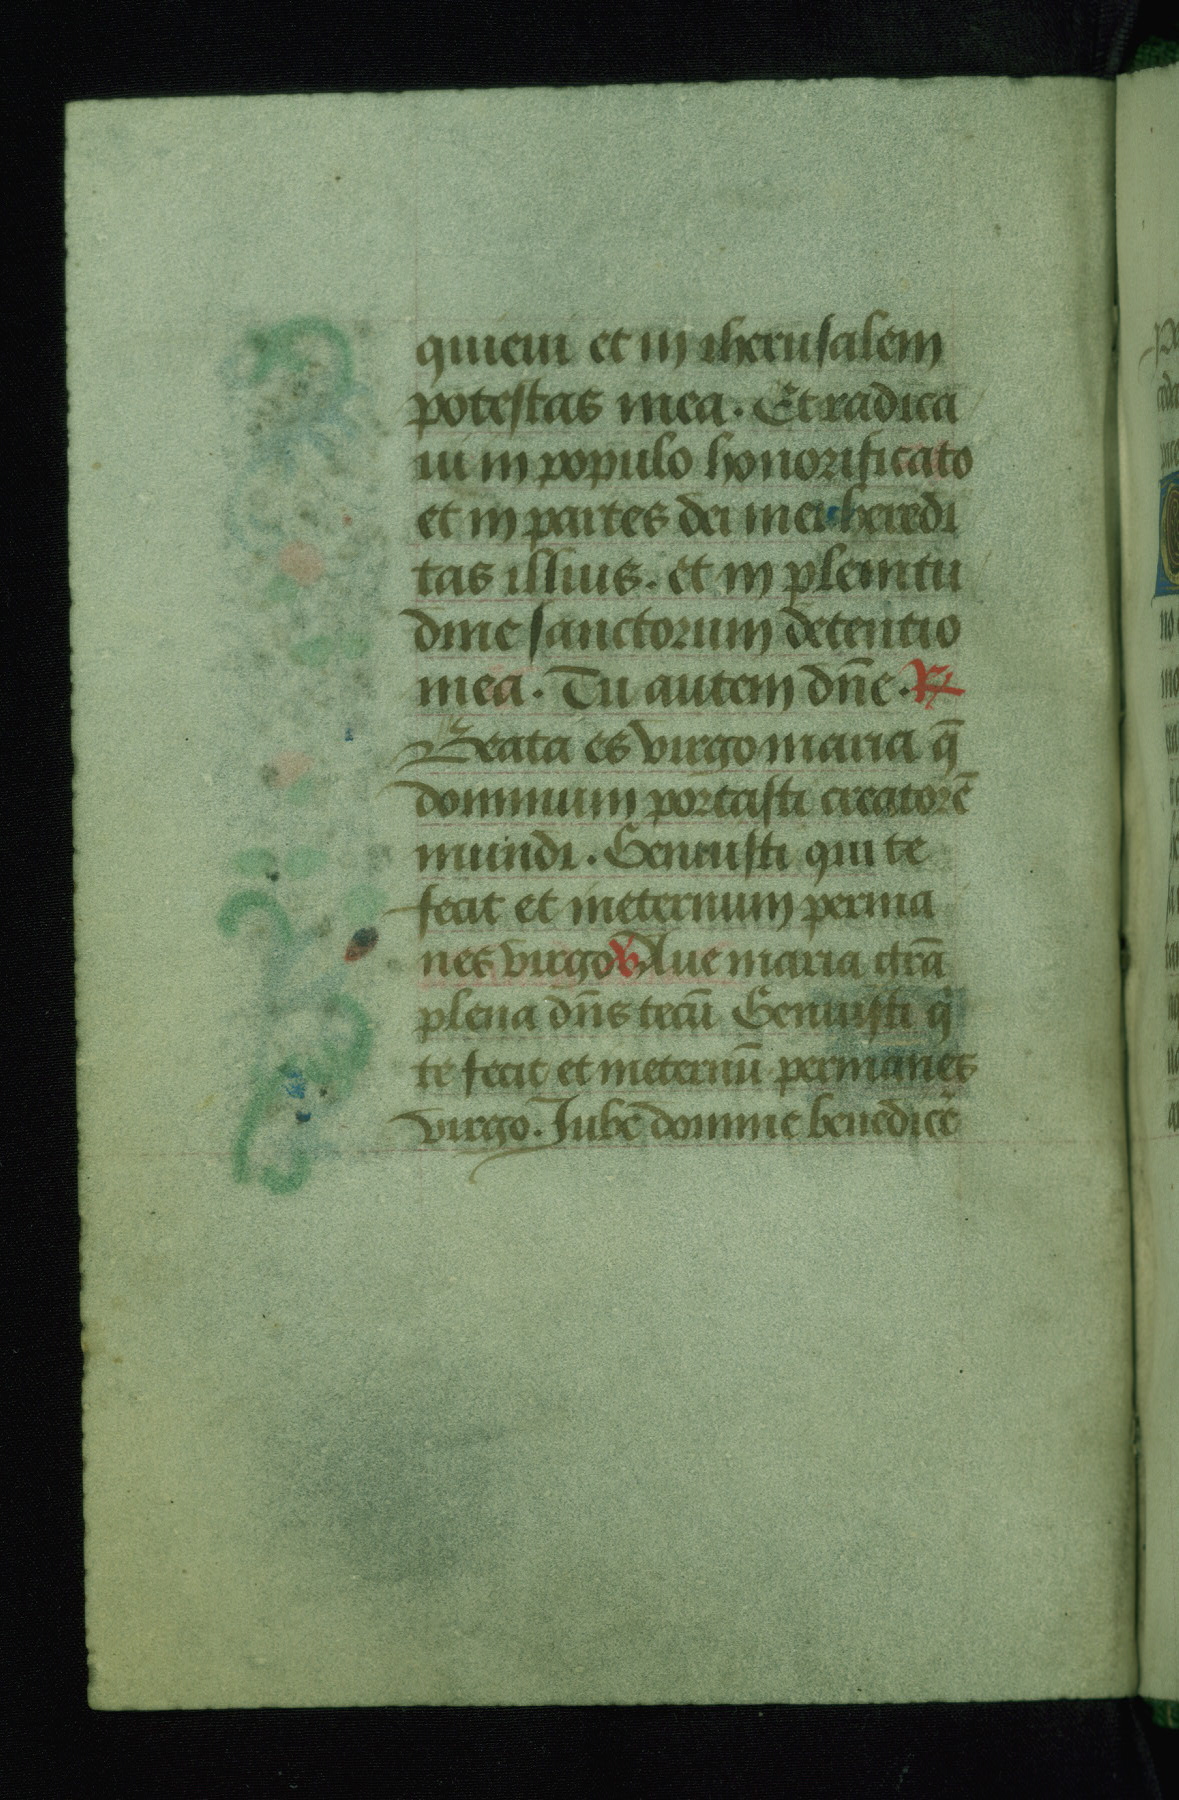 quieui et in iherusalem
potestas mea. Et radica
ui in populo honorificato
et in partes dei mei heredi
tas illius. et in plenitu
dine sanctorum detentio
mea. Tu autem dn̄e. ℟
Beata es virgo maria q̄
dominum portasti creatorē
mundi. Genuisti qui te
fecit et ineternum perma
nes virgo ℣ Aue maria grā
plena dn̄s tecū Genuisti q̄
te fecit et ineternū permanes
virgo. Iube domine benedicē